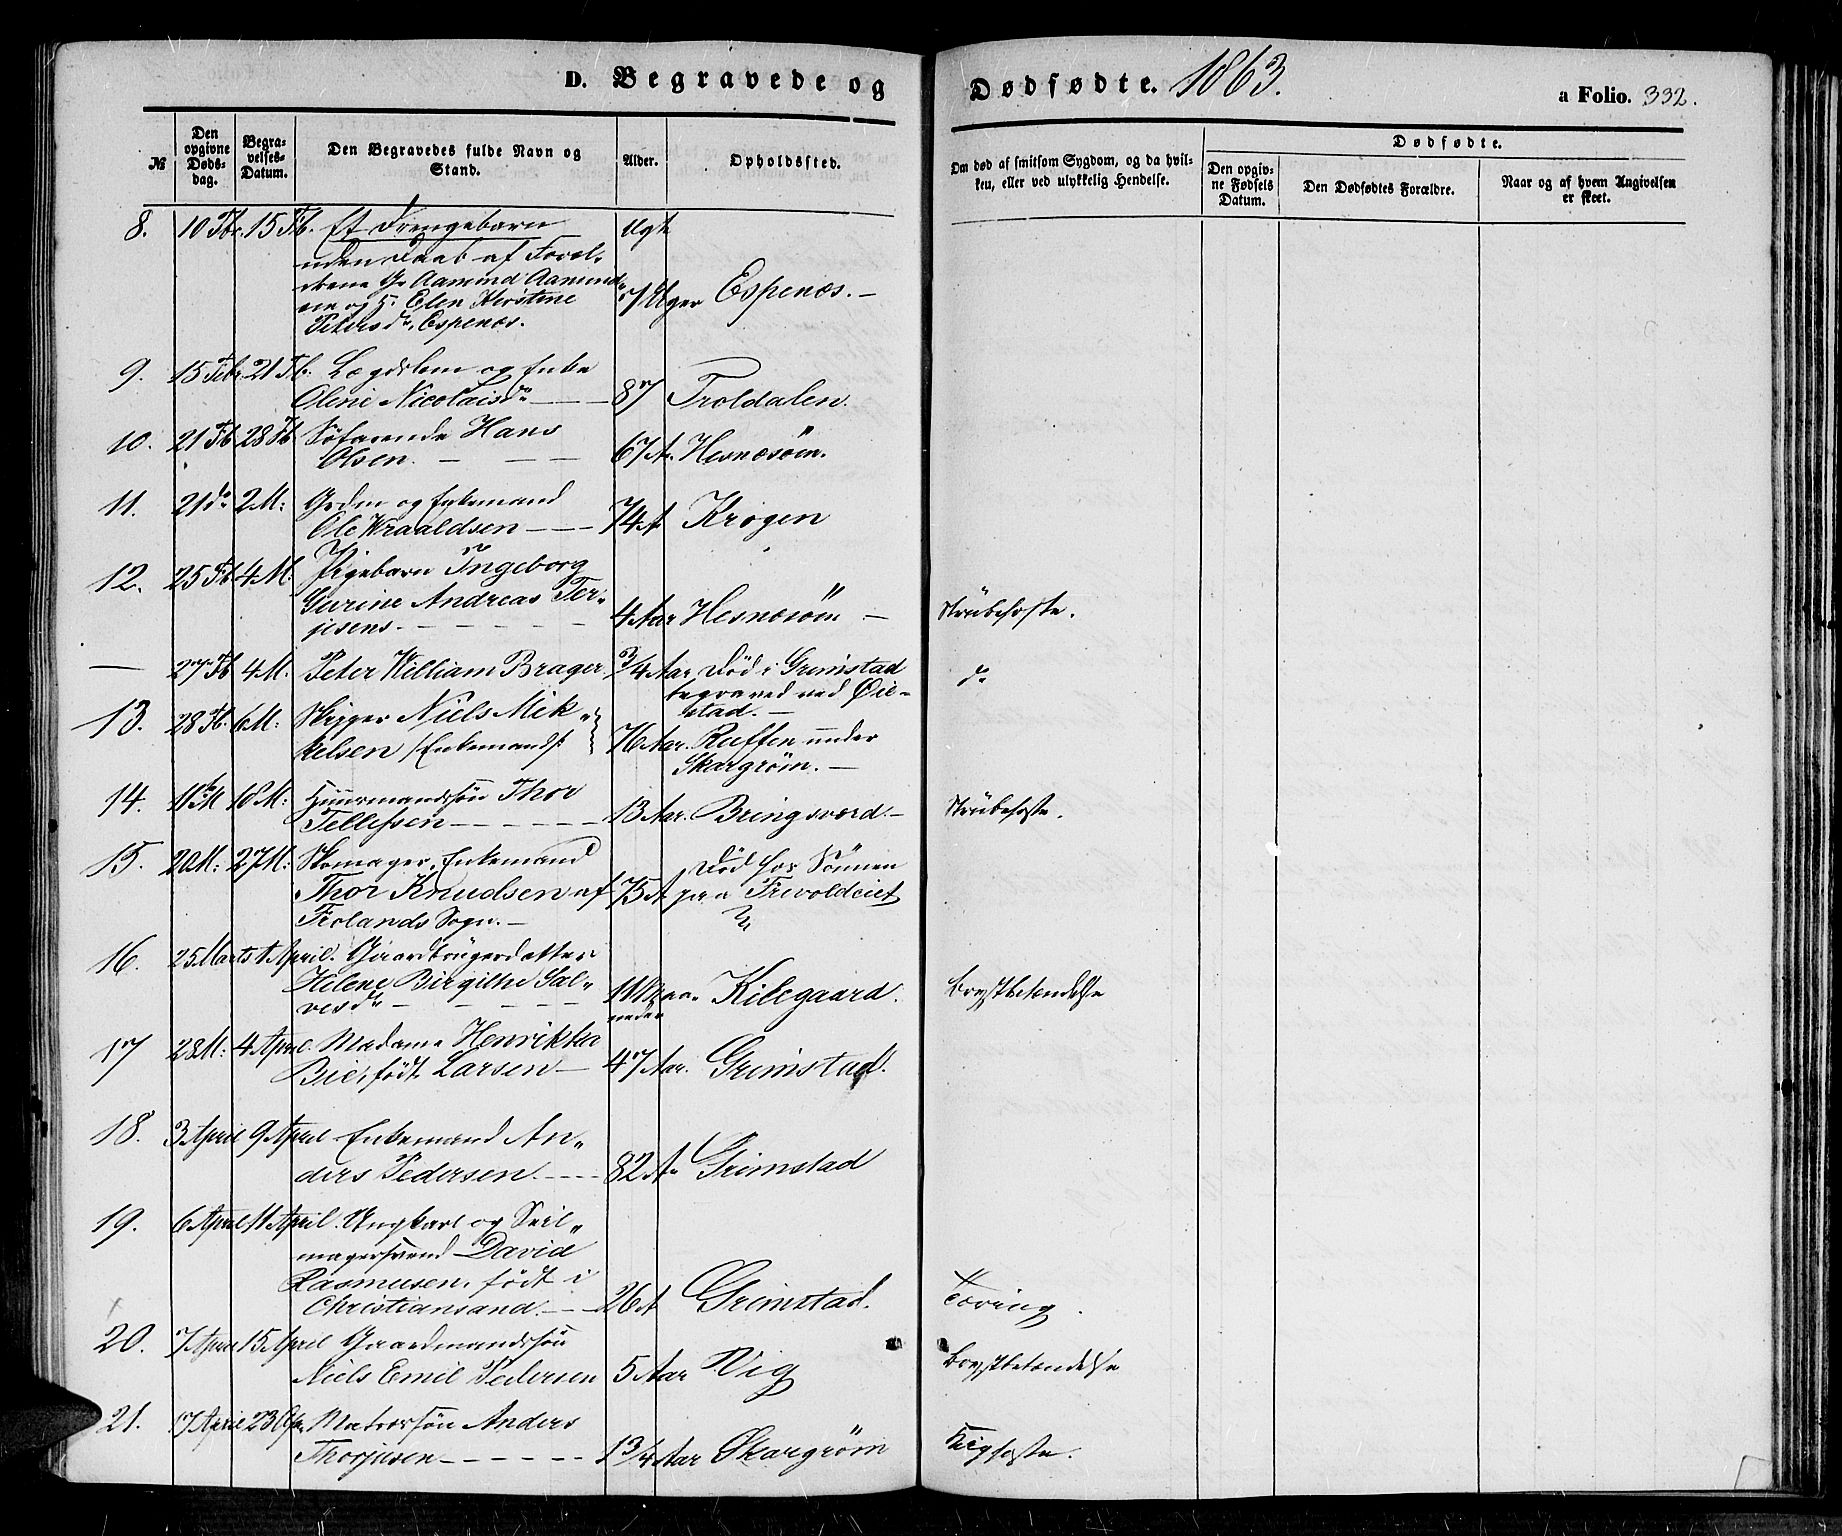 D. Begravede og Dødfødte. 1863.
a Folio. 332.
№
Den opgivne Døds-dag.
Begra-velses-Datum.
Den Begravedes fulde Navn og Stand.
Alder.
Opholdssted.
Om død af smitsom Sygdom, og da hvil-ken, eller ved ulykkelig Hendelse.
Dødfødte.
Den opgiv-ne Fødsels Datum.
Den Dødfødtes Forældre.
Naar og af hvem Angivelsen er skeet.
8. 10 Fbr. 15 Fb. Et Drengebarn Ugt
uden Daab af Foræl-
drene G. Aamund Aamund-
sen og H. Elen Kirstine 7 Uger Espenæs. –
Petersdr. Espenæs.
9. 15 Febr. 21 Fb. Lægdslem og Enke
Oline Nicolaisdr. 87 Troldalen.
10. 21 Fb. 28 Fb. Søfarende Hans
Olsen. 67 A. Hesnæsöen.
11. 21 do 2 M: Gdm og Enkemand
Ole Wraaldsen 74 A Krogen
12. 25 Fb 4 M. Pigebarn Ingeborg
Gurine Andreas Ter-
jesens. 4 Aar Hesnæsöen – Strubehoste.
— 27 Fb 4 M. Peter William Brager 3/4 Aar Död i Grimstad do
begraved ved Øie-
stad. –
13. 28 Fb. 6 M: Skipper Niels Mik-
kelsen /Enkemand/ 76 Aar. Ruffen under
Skargrøm. –
14. 11 M 18 M: Huusmandssön Thor
Tellefsen 13 Aar. Bringsværd. – Strubehoste.
15. 20 M: 27 M: Skomager, Enkemand Död hos Sönnen
Thor Knudsen af 75 A paa Trevoldeiet
Frolands Sogn. –
16. 25 Marts 1 April. Gaardbrugerdatter
Helene Birgithe Sal-
vesdr 11 Maa-neder Kilegaard. Brystbetændelse
17 28 M: 4 April. Madame Henrikka
Bie, födt Larsen – 47 Aar. Grimstad.
18. 3 April 9 April Enkemand An-
ders Pedersen. 82 A. Grimstad
19. 6 April 11 April. Ungkarl og Seil-
magersvend David
Rasmusen, födt i
Christiansand. 26 A Grimstad. Tæring.
20. 7 April 15 April Gaardmandssön
Niels Emil Pedersen 5 Aar Vig Brystbetændelse
21. 17 April 23 Apr. Matrossön Anders
Thorjusen 1 3/4 Aar Skargrøm Kighoste.